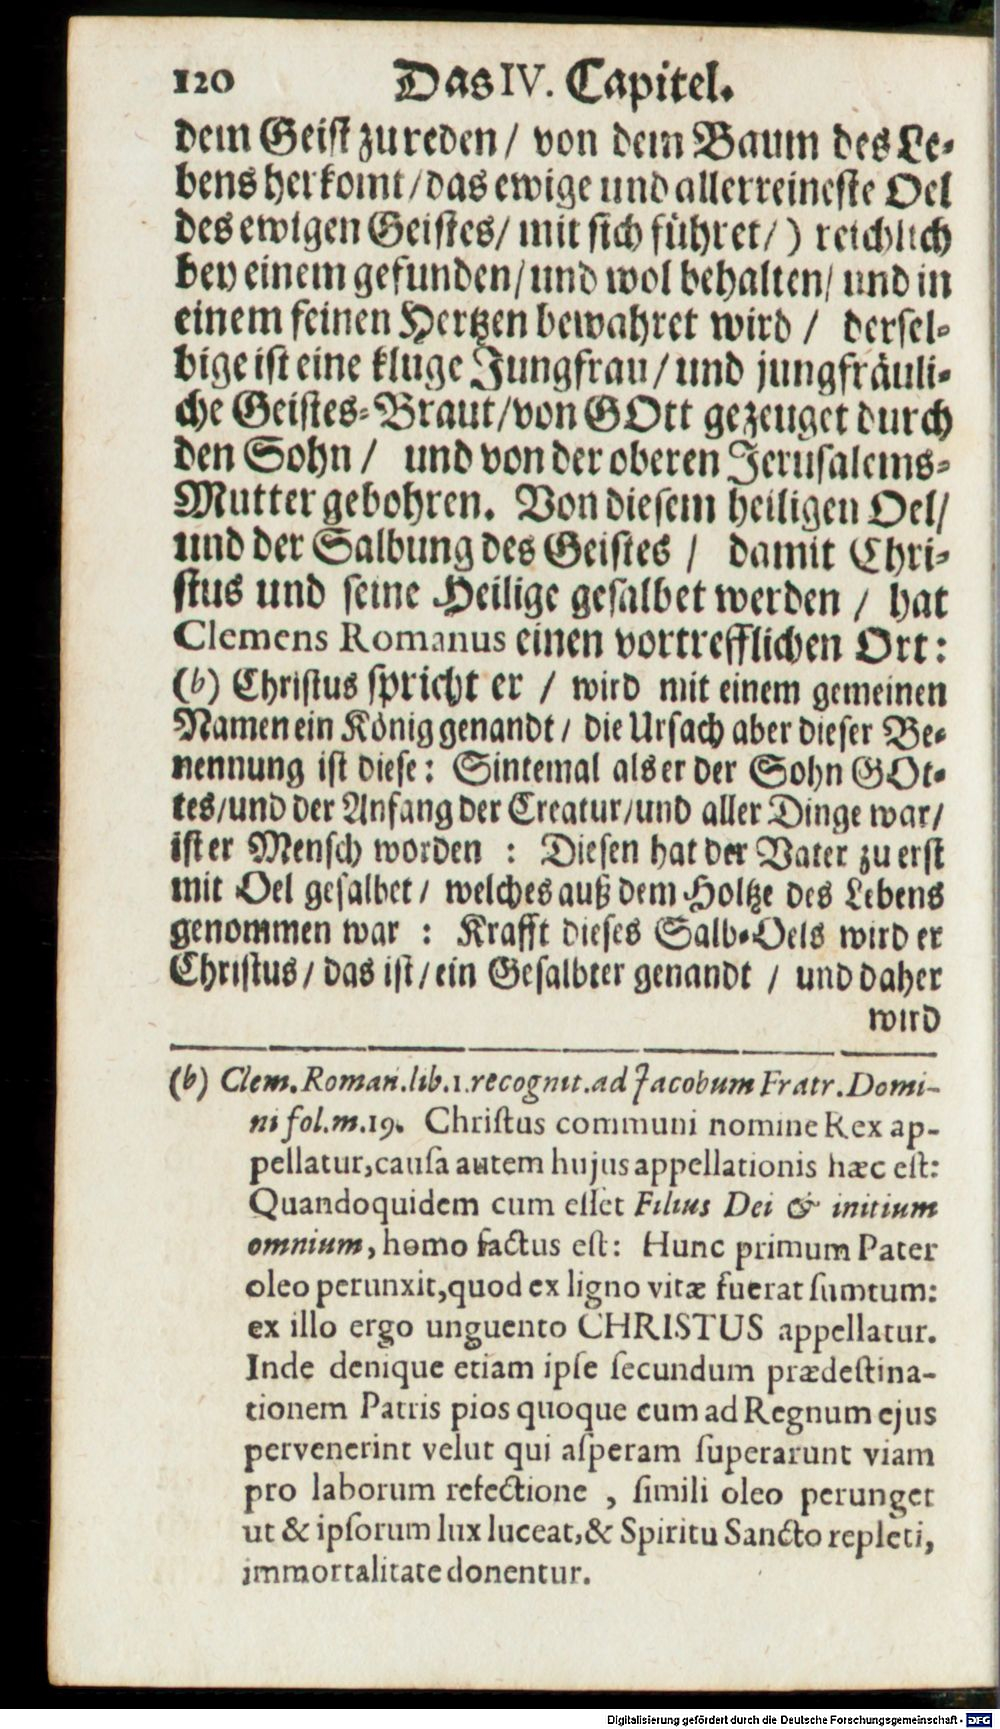 120 Das IV. Capitel.
dem Geist zu reden / von dem Baum des Le-
bens herkomt / das ewige und allerreineste Oel
des ewigen Geistes / mit sich führet / ) reichlich
bey einem gefunden / und wol behalten / und in
einem feinen Hertzen bewahret wird / dersel-
bige ist eine kluge Jungfrau / und jungfräuli-
che Geistes-Braut / von GOtt gezeuget durch
den Sohn / und von der oberen Jerusalems-
Mutter gebohren. Von diesem heiligen Oel /
und der Salbung des Geistes / damit Chri-
stus und seine Heilige gesalbet werden / hat
Clemens Romanus einen vortrefflichen Ort:
(b) Christus spricht er / wird mit einem gemeinen
Namen ein König genandt / die Ursach aber dieser Be-
nennung ist diese: Sintemal als er der Sohn GOt-
tes / und der Anfang der Creatur / und aller Dinge war /
ist er Mensch worden : Diesen hat der Vater zu erst
mit Oel gesalbet / welches auß dem Holtze des Lebens
genommen war : Krafft dieses Salb-Oels wird er
Christus / das ist / ein Gesalbter genandt / und daher
wird
(b) Clem. Roman. lib. 1. recognit. ad Jacobum Fratr. Domi-
ni fol. m. 19. Chriſtus communi nomine Rex ap-
pellatur, cauſa autem hujus appellationis hæc eſt:
Quandoquidem cum eſſet Filius Dei & initium
omnium, homo factus eſt: Hunc primum Pater
oleo perunxit, quod ex ligno vitæ fuerat ſumtum:
ex illo ergo unguento CHRISTUS appellatur.
Inde denique etiam ipſe ſecundum prædeſtina-
tionem Patris pios quoque cum ad Regnum ejus
pervenerint velut qui aſperam ſuperarunt viam
pro laborum refectione , ſimili oleo perunget
ut & ipſorum lux luceat, & Spiritu Sancto repleti,
immortalitate donentur.
Digitalisierung gefördert durch die Deutsche Forschungsgemeinschaft - DFG